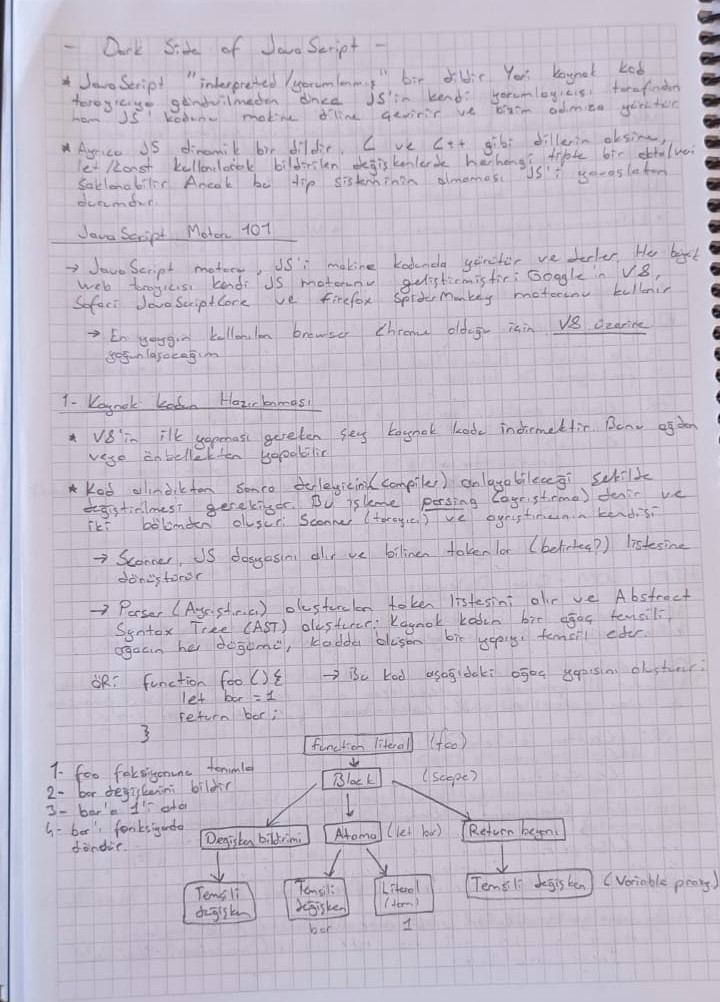 - Dark Side of JavaScript -
* JavaScript "interpreted/yorumlanmış" bir dildir Yani kaynak kod
tarayıcıya gönderilmeden önce JS'in kendi yorumlayıcısı tarafından
ham JS kodunu makine diline çevirir ve bizim adımıza yürütür
* Ayrıca JS dinamik bir dildir. C ve C++ gibi dillerin aksine,
let/const kullanılarak bildirilen değişkenlerde herhangi tipte bir
saklanabilir Ancak bu tip sisteminin olmaması JS'i yavaşlatan
durumdur.
JavaScript Motoru 101
→ JavaScript motoru, JS'i makine kodunda yürütür ve derler. Her büyük
web tarayıcısı kendi JS motorunu geliştirmiştir: Google'ın V8,
Safari JavaScriptCore ve Firefox SpiderMonkey motorunu kullanır
→ En yaygın kullanılan browser Chrome olduğu için V8 üzerine
yoğunlaşacağım
1- Kaynak kodun Hazırlanması
* V8'in ilk yapması gereken şey kaynak kodu indirmektir. Bunu ağdan
veya önbellekten yapabilir
* Kod alındıktan sonra derleyicinin(compiler) anlayabileceği şekilde
değiştirilmesi gerekiyor. Bu işleme parsing (ayrıştırma) denir ve
iki bölümden oluşur: Scanner (tarayıcı) ve ayrıştırıcının kendisi
→ Scanner, JS dosyasını alır ve bilinen tokenlar (belirteç?) listesine
dönüştürür
→ Parser (Ayrıştırıcı) oluşturulan token listesini alır ve Abstract
Syntax Tree (AST) oluşturur: Kaynak kodun bir ağaç temsili,
ağacın her düğümü, kodda oluşan bir yapıyı temsil eder.
ÖR: function foo () { → Bu kod aşağıdaki ağaç yapısını oluşturur:
let bar = 1
return bar;
}
function literal (foo)
1- foo foksiyonunu tanımla
Block (scope)
2- bar değişkenini bildir
3- bar'a 1'i ata
4- bar'ı fonksiyonda
döndür.
Değişken bildirimi Atama (let bar) Return beyanı
Temsili değişken (Variable proxy)
Temsili Temsili Literal
değişken değişken
bar 1